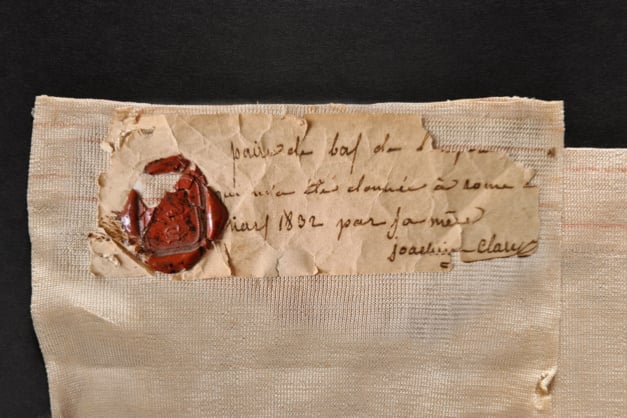 paire de bas de
m'a été donnée à rome
mars 1832 par sa mère
joachim Clary